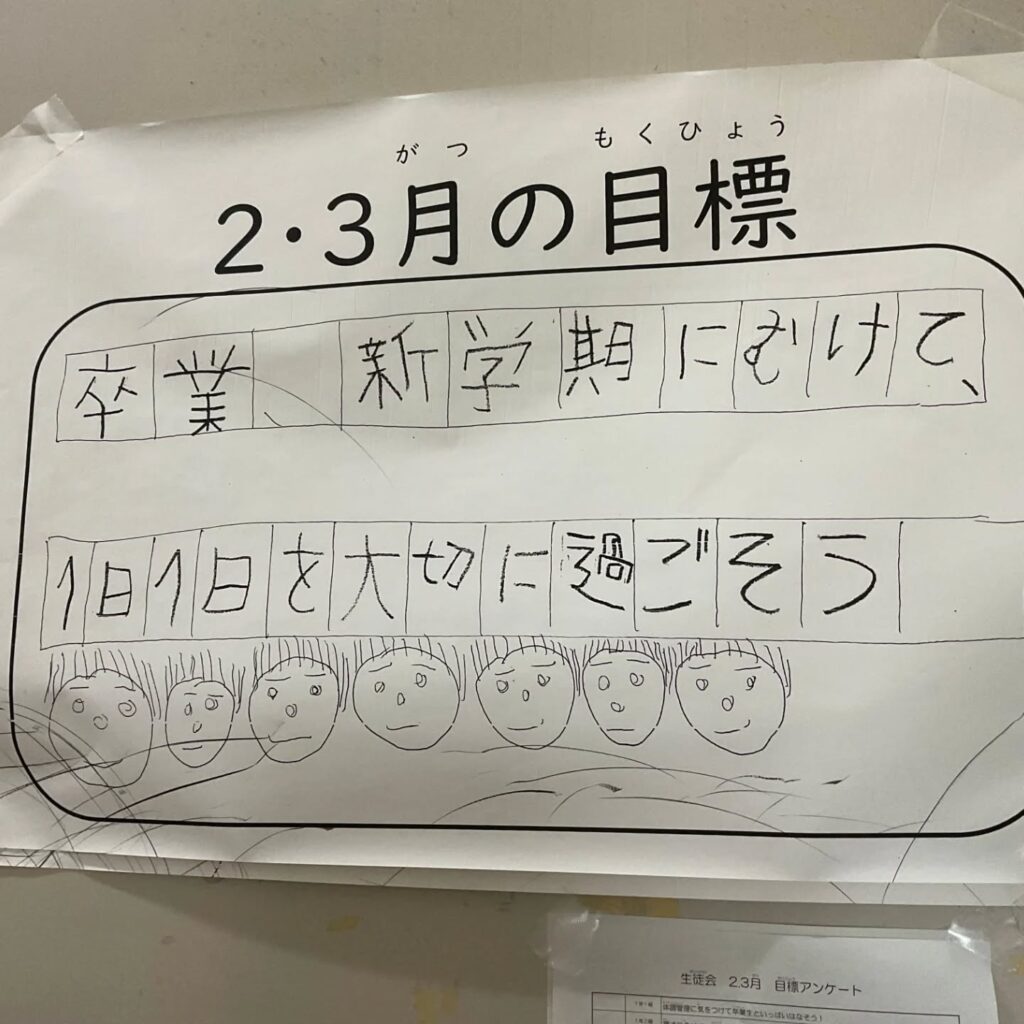 がつ もくひょう
2・3月の目標
卒業、新学期にむけて、
1日1日を大切に過ごそう
生徒会 2.3月 目標アンケート
体調管理に気をつけて卒業生といっぱいはなそう!